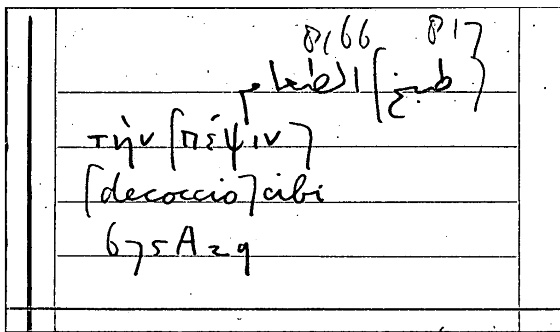 8,66 817
[طبخ] الطعام
τὴν [πέψιν]
[decoccio] cibi
675A29